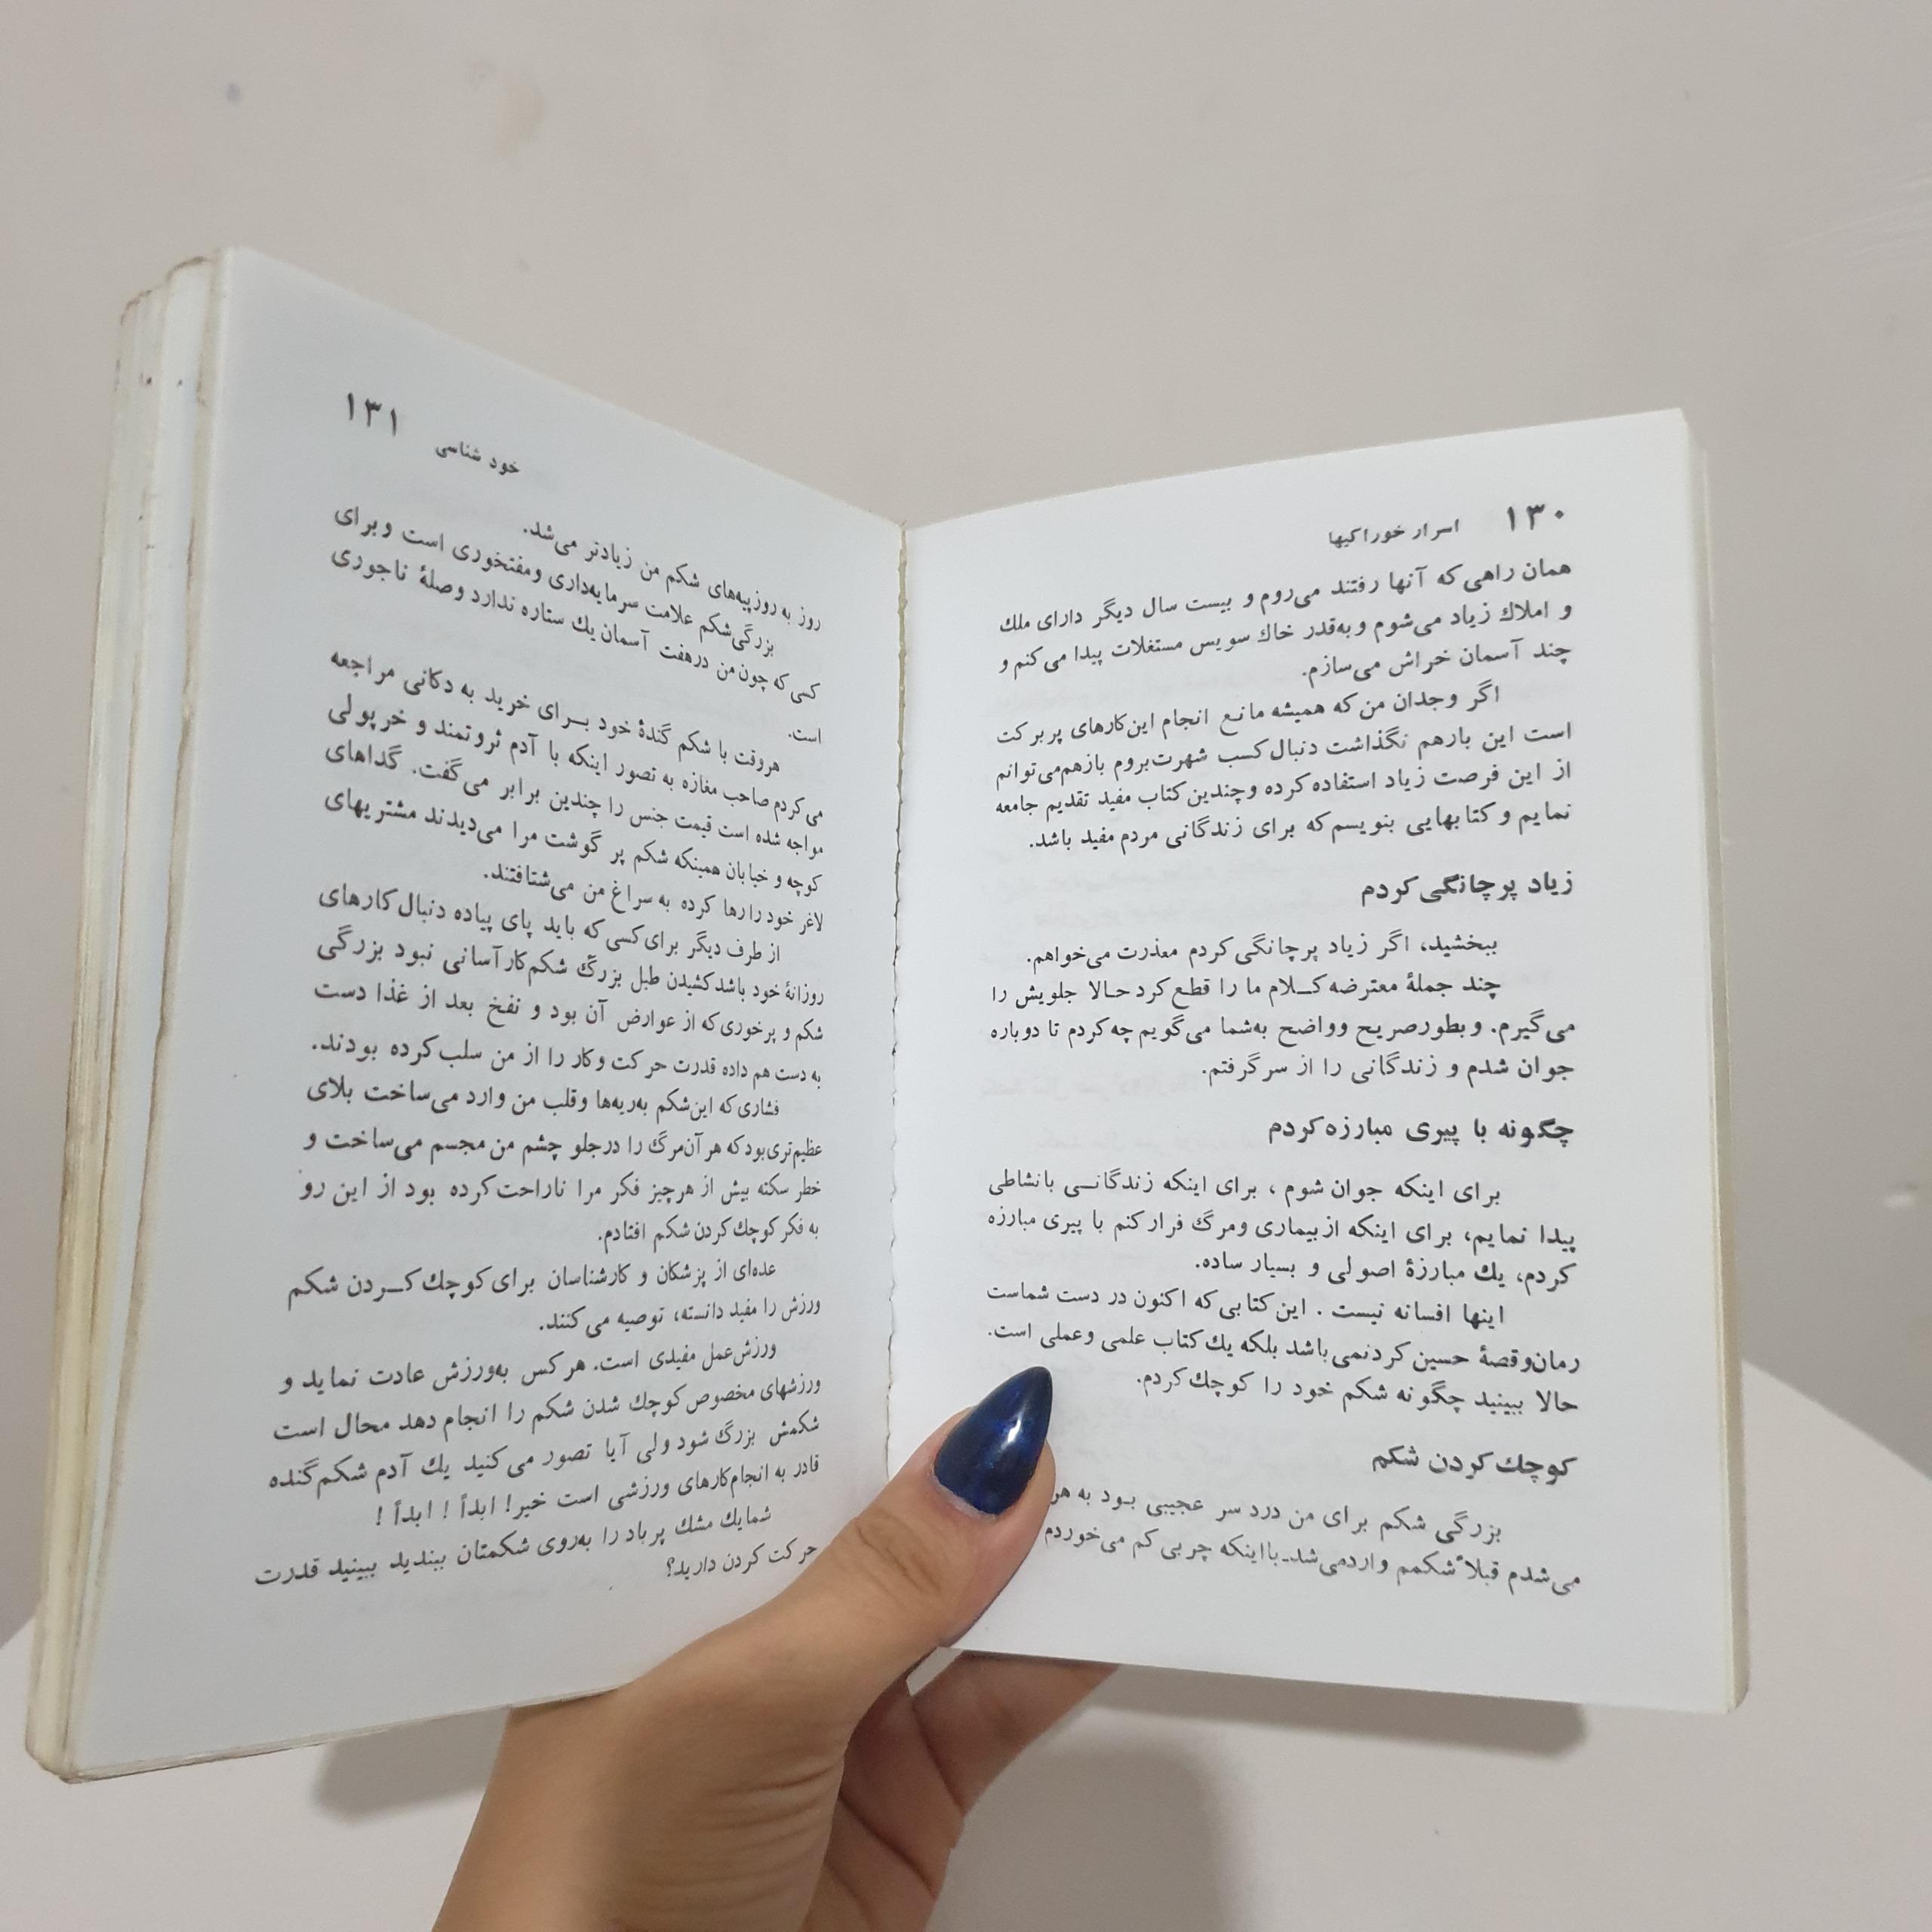 ۱۳۰ اسرار خوراکیها
همان راهی که آنها رفتند می‌روم و بیست سال دیگر دارای ملك
و املاك زیاد می‌شوم و به‌قدر خاك سویس مستغلات پیدا می‌کنم و
چند آسمان خراش می‌سازم.
اگر وجدان من که همیشه مانع انجام این‌کارهای پربرکت
است این بارهم نگذاشت دنبال کسب شهرت بروم بازهم می‌توانم
از این فرصت زیاد استفاده کرده و چندین کتاب مفید تقدیم جامعه
نمایم و کتابهایی بنویسم که برای زندگانی مردم مفید باشد.
زیاد پرچانگی کردم
ببخشید، اگر زیاد پرچانگی کردم معذرت می‌خواهم.
چند جملهٔ معترضه کـلام ما را قطع کرد حـالا جلویش را
می‌گیرم. و بطور صریح و واضح به‌شما می‌گویم چه کردم تا دوباره
جوان شدم و زندگانی را از سر گرفتم.
چگونه با پیری مبارزه کردم
برای اینکه جوان شوم، برای اینکه زندگانـی بانشاطی
پیدا نمایم، برای اینکه از بیماری و مرگ فرار کنم با پیری مبارزه
کردم، یك مبارزهٔ اصولی و بسیار ساده.
اینها افسانه نیست . این کتابی که اکنون در دست شماست
رمان و قصهٔ حسین کرد نمی‌باشد بلکه یك کتاب علمی و عملی است.
حالا ببینید چگونه شکم خود را کوچك کردم.
کوچك کردن شکم
بزرگی شکم برای من درد سر عجیبی بـود به هر
می‌شدم قبلاً شکمم وارد می‌شد. با اینکه چربی کم می‌خوردم
خود شناسی ۱۳۱
روز به روز پیه‌های شکم من زیادتر می‌شد.
بزرگی شکم علامت سرمایه‌داری و مفتخوری است و برای
کسی که چون من در هفت آسمان یك ستاره ندارد وصلهٔ ناجوری
است.
هروقت با شکم گندهٔ خود بـرای خرید به دکانی مراجعه
می‌کردم صاحب مغازه به تصور اینکه با آدم ثروتمند و خرپولی
مواجه شده است قیمت جنس را چندین برابر می‌گفت. گداهای
کوچه و خیابان همینکه شکم پر گوشت مرا می‌دیدند مشتریهای
لاغر خود را رها کرده به سراغ من می‌شتافتند.
از طرف دیگر برای کسی که باید پای پیاده دنبال کارهای
روزانهٔ خود باشد کشیدن طبل بزرگ شکم کار آسانی نبود بزرگی
شکم و پرخوری که از عوارض آن بود و نفخ بعد از غذا دست
به دست هم داده قدرت حرکت و کار را از من سلب کرده بودند.
فشاری که این شکم به‌ریه‌ها و قلب من وارد می‌ساخت بلای
عظیم‌تری بود که هر آن مرگ را در جلو چشم من مجسم می‌ساخت و
خطر سکته بیش از هر چیز فکر مرا ناراحت کرده بود از این رو
به فکر کوچك کردن شکم افتادم.
عده‌ای از پزشکان و کارشناسان برای کوچك کـردن شکم
ورزش را مفید دانسته، توصیه می‌کنند.
ورزش عمل مفیدی است. هر کس به‌ورزش عادت نماید و
ورزشهای مخصوص کوچك شدن شکم را انجام دهد محال است
شکمش بزرگ شود ولی آیا تصور می‌کنید یك آدم شکم گنده
قادر به انجام کارهای ورزشی است خیر! ابداً ! ابداً !
شما یك مشك پر باد را به‌روی شکمتان ببندید ببینید قدرت
حرکت کردن دارید؟